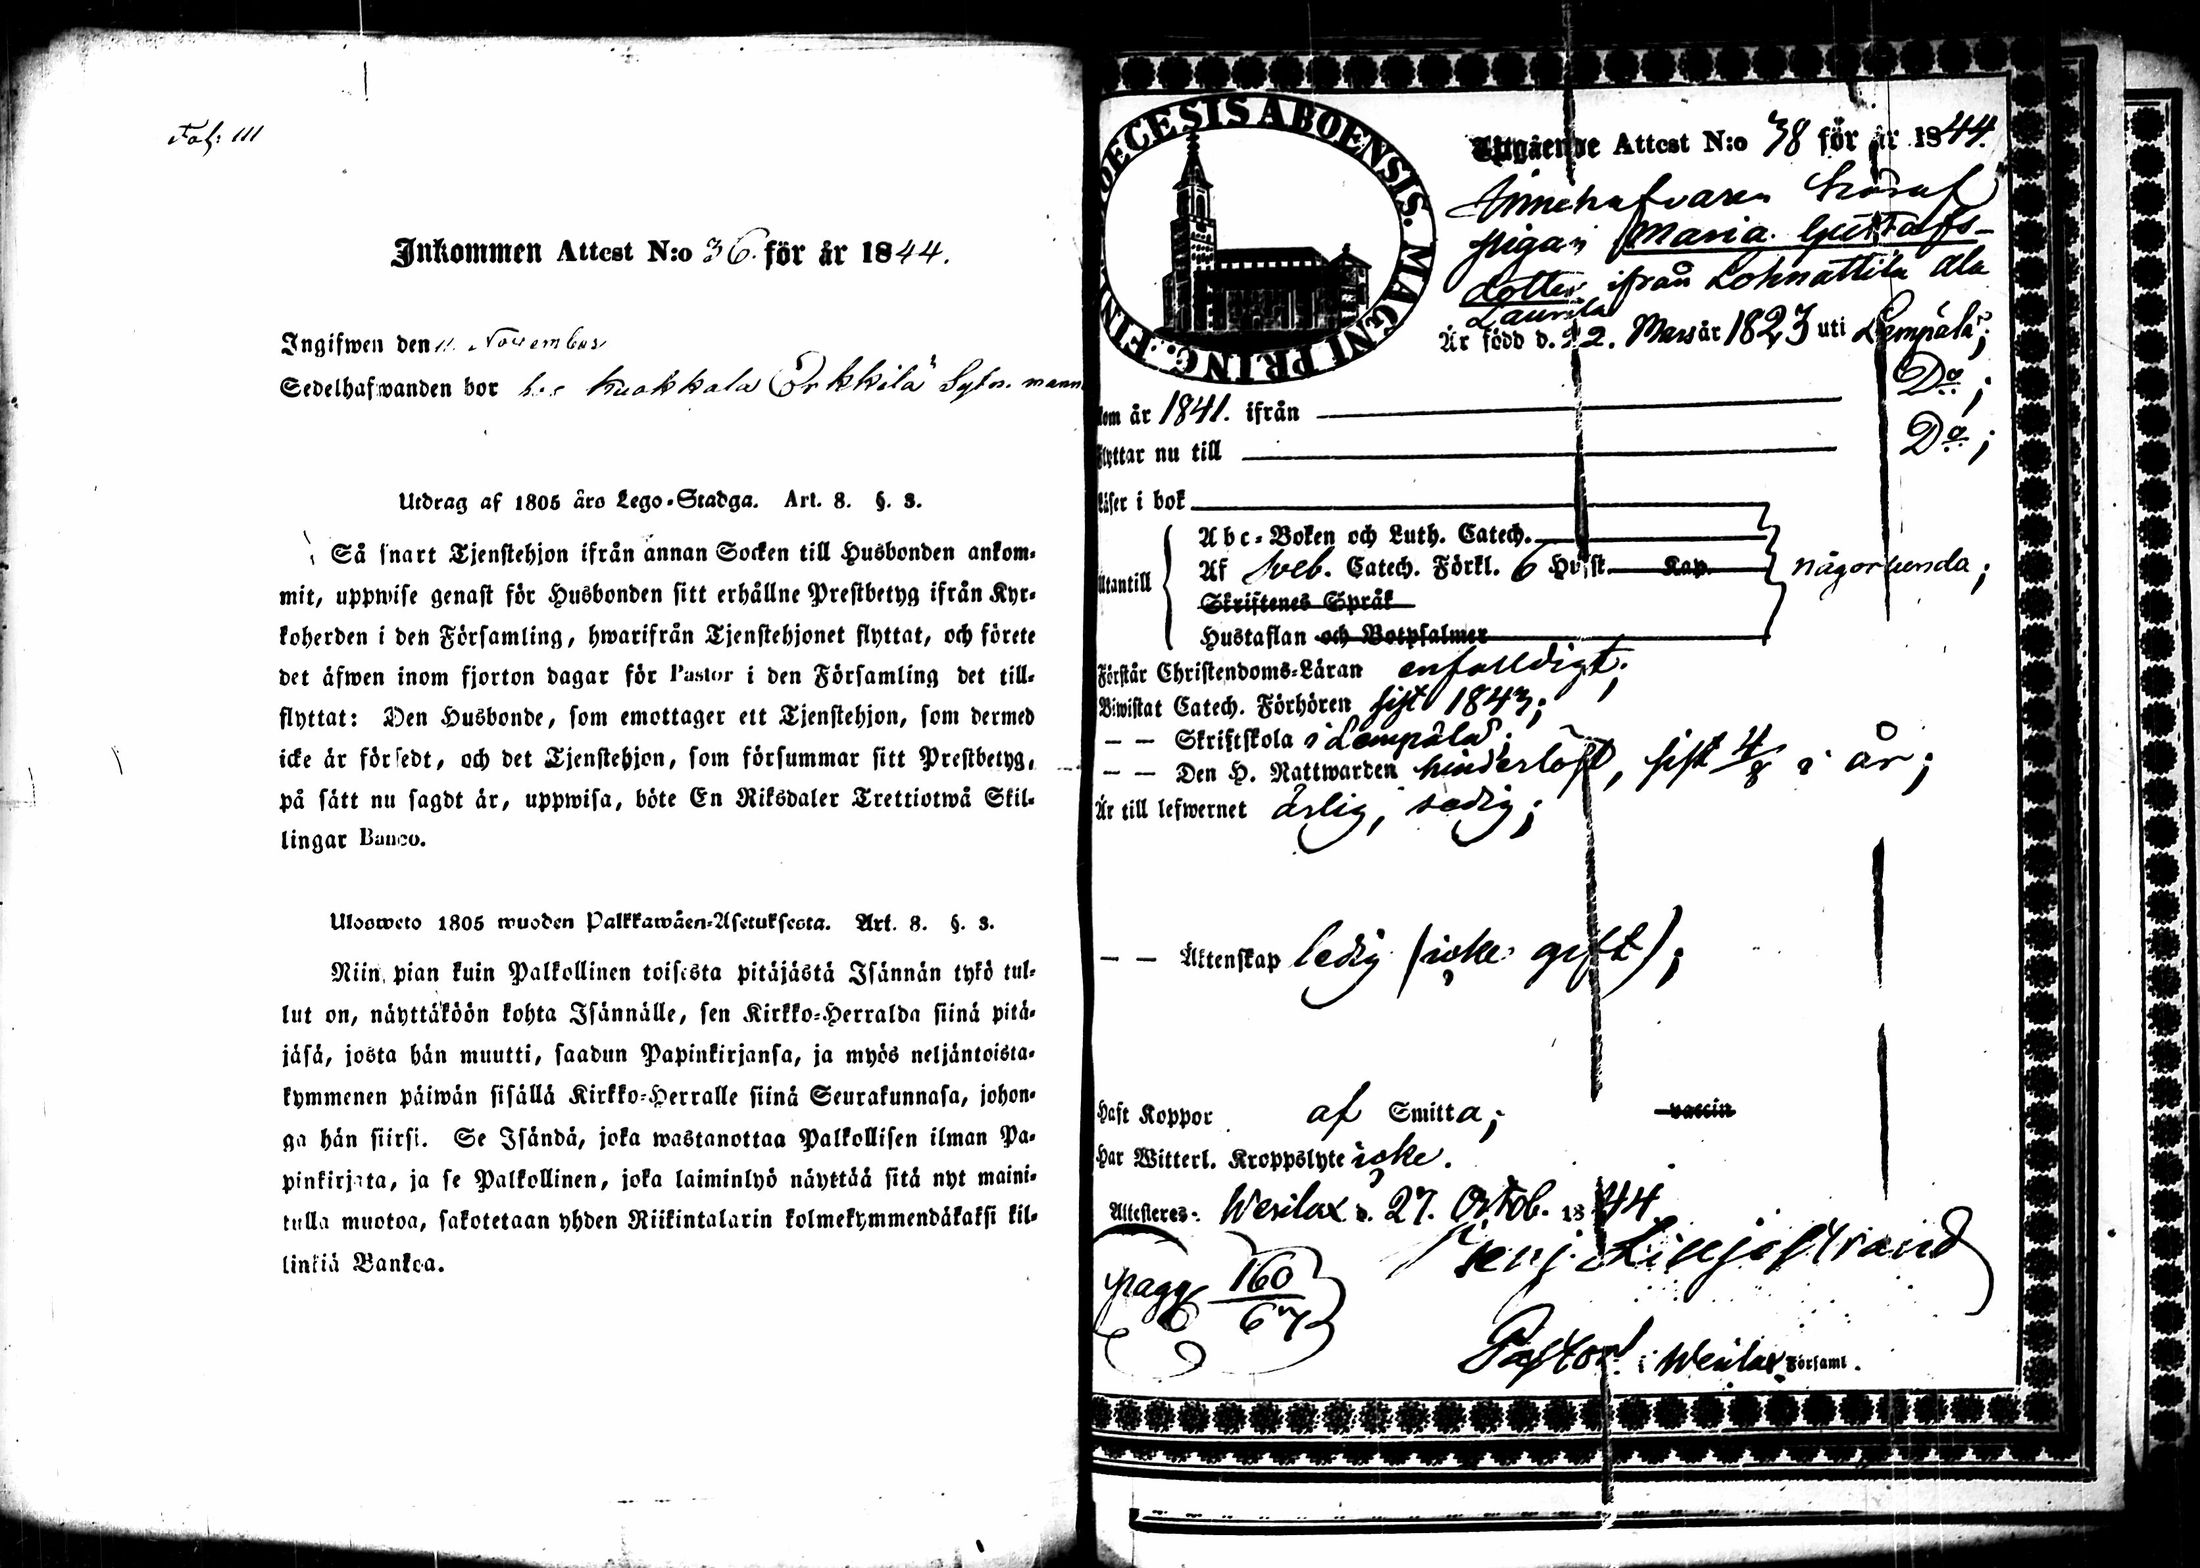 Fol: 111
Inkommen Attest N:o 36. för år 1844.
Ingifwen den 11. November
Sedelhafwanden bor hos Kuokkala Örkkilä Sytn. mann
Utdrag af 1805 års Lego-Stadga. Art. 8. §. 3.
Så snart Tjenstehjon ifrån annan Socken till Husbonden ankom-
mit, uppwise genast för Husbonden sitt erhållne Prestbetyg ifrån Kyr-
koherden i den Församling, hwarifrån Tjenstehjonet flyttat, och förete
det äfwen inom fjorton dagar för Pastor i den Församling det till-
flyttat: Den Husbonde, som emottager ett Tjenstehjon, som dermed
icke är försedt, och det Tjenstehjon, som försummar sitt Prestbetyg,
på sätt nu sagdt är, uppwisa, böte En Riksdaler Trettiotwå Skil-
lingar Banco.
Ulosweto 1805 wuoden Palkkawäen-Asetuksesta. Art. 8. §. 3.
Niin pian kuin Palkollinen toisesta pitäjästä Isännän tykö tul-
lut on, näyttäköön kohta Isännälle, sen Kirkko-Herralda siinä pitä-
jäsä, josta hän muutti, saadun Papinkirjansa, ja myös neljäntoista-
kymmenen päiwän sisällä Kirkko-Herralle siinä Seurakunnasa, johon-
ga hän siirsi. Se Isändä, joka wastanottaa Palkollisen ilman Pa-
pinkirjata, ja se Palkollinen, joka laiminlyö näyttää sitä nyt maini-
tulla muotoa, sakotetaan yhden Riikintalarin kolmekymmendäkaksi kil-
linkiä Bankoa.
DIOECESIS ABOENSIS. MAGNI PRINC. FIN
Utgående Attest N:o 38 för år 1844.
Innehafvaren häraf
pigan Maria Gustafs-
dotter ifrån Lohnattila Ala
Laurila
Är född d. 22. Mars år 1823 uti Lempälä;
kom år 1841. ifrån D:o;
flyttar nu till D:o;
Läser i bok
Abc-Boken och Luth. Catech.
Utantill Af Sveb. Catech. Förkl. 6 Hufst. Kap. någorlunda;
Skriftenes Språk
Hustaflan och Botpsalmer
Förstår Christendoms-Läran enfaldigt;
Biwistat Catech. Förhören sist 1843;
— — Skriftskola i Lempälä;
— — Den H. Nattwarden hinderlöst, sist 4/8 i år;
Är till lefwernet ärlig, sedig;
— — Äktenskap ledig (icke gift);
Haft Koppor af Smitta; vaccin
Har Witterl. Kroppslyte icke.
Attesteres: Wesilax d. 27. Octob. 1844
Benj. Liljestrand
pagg 160/67
Pastor i Wesilax Församl.